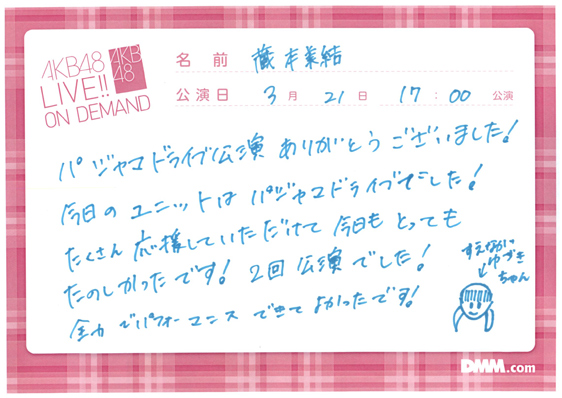 AKB48
LIVE!!
ON DEMAND
AKB
48
名前 蔵本美結
公演日 3月21日 17:00 公演
パジャマドライブ公演 ありがとうございました!
今日のユニットは パジャマドライブでした!
たくさん 応援していただけて 今日も とっても
たのしかったです! 2回公演でした!
全力でパフォーマンスできて よかったです!
すえなが
ゆづき
ちゃん
DMM.com